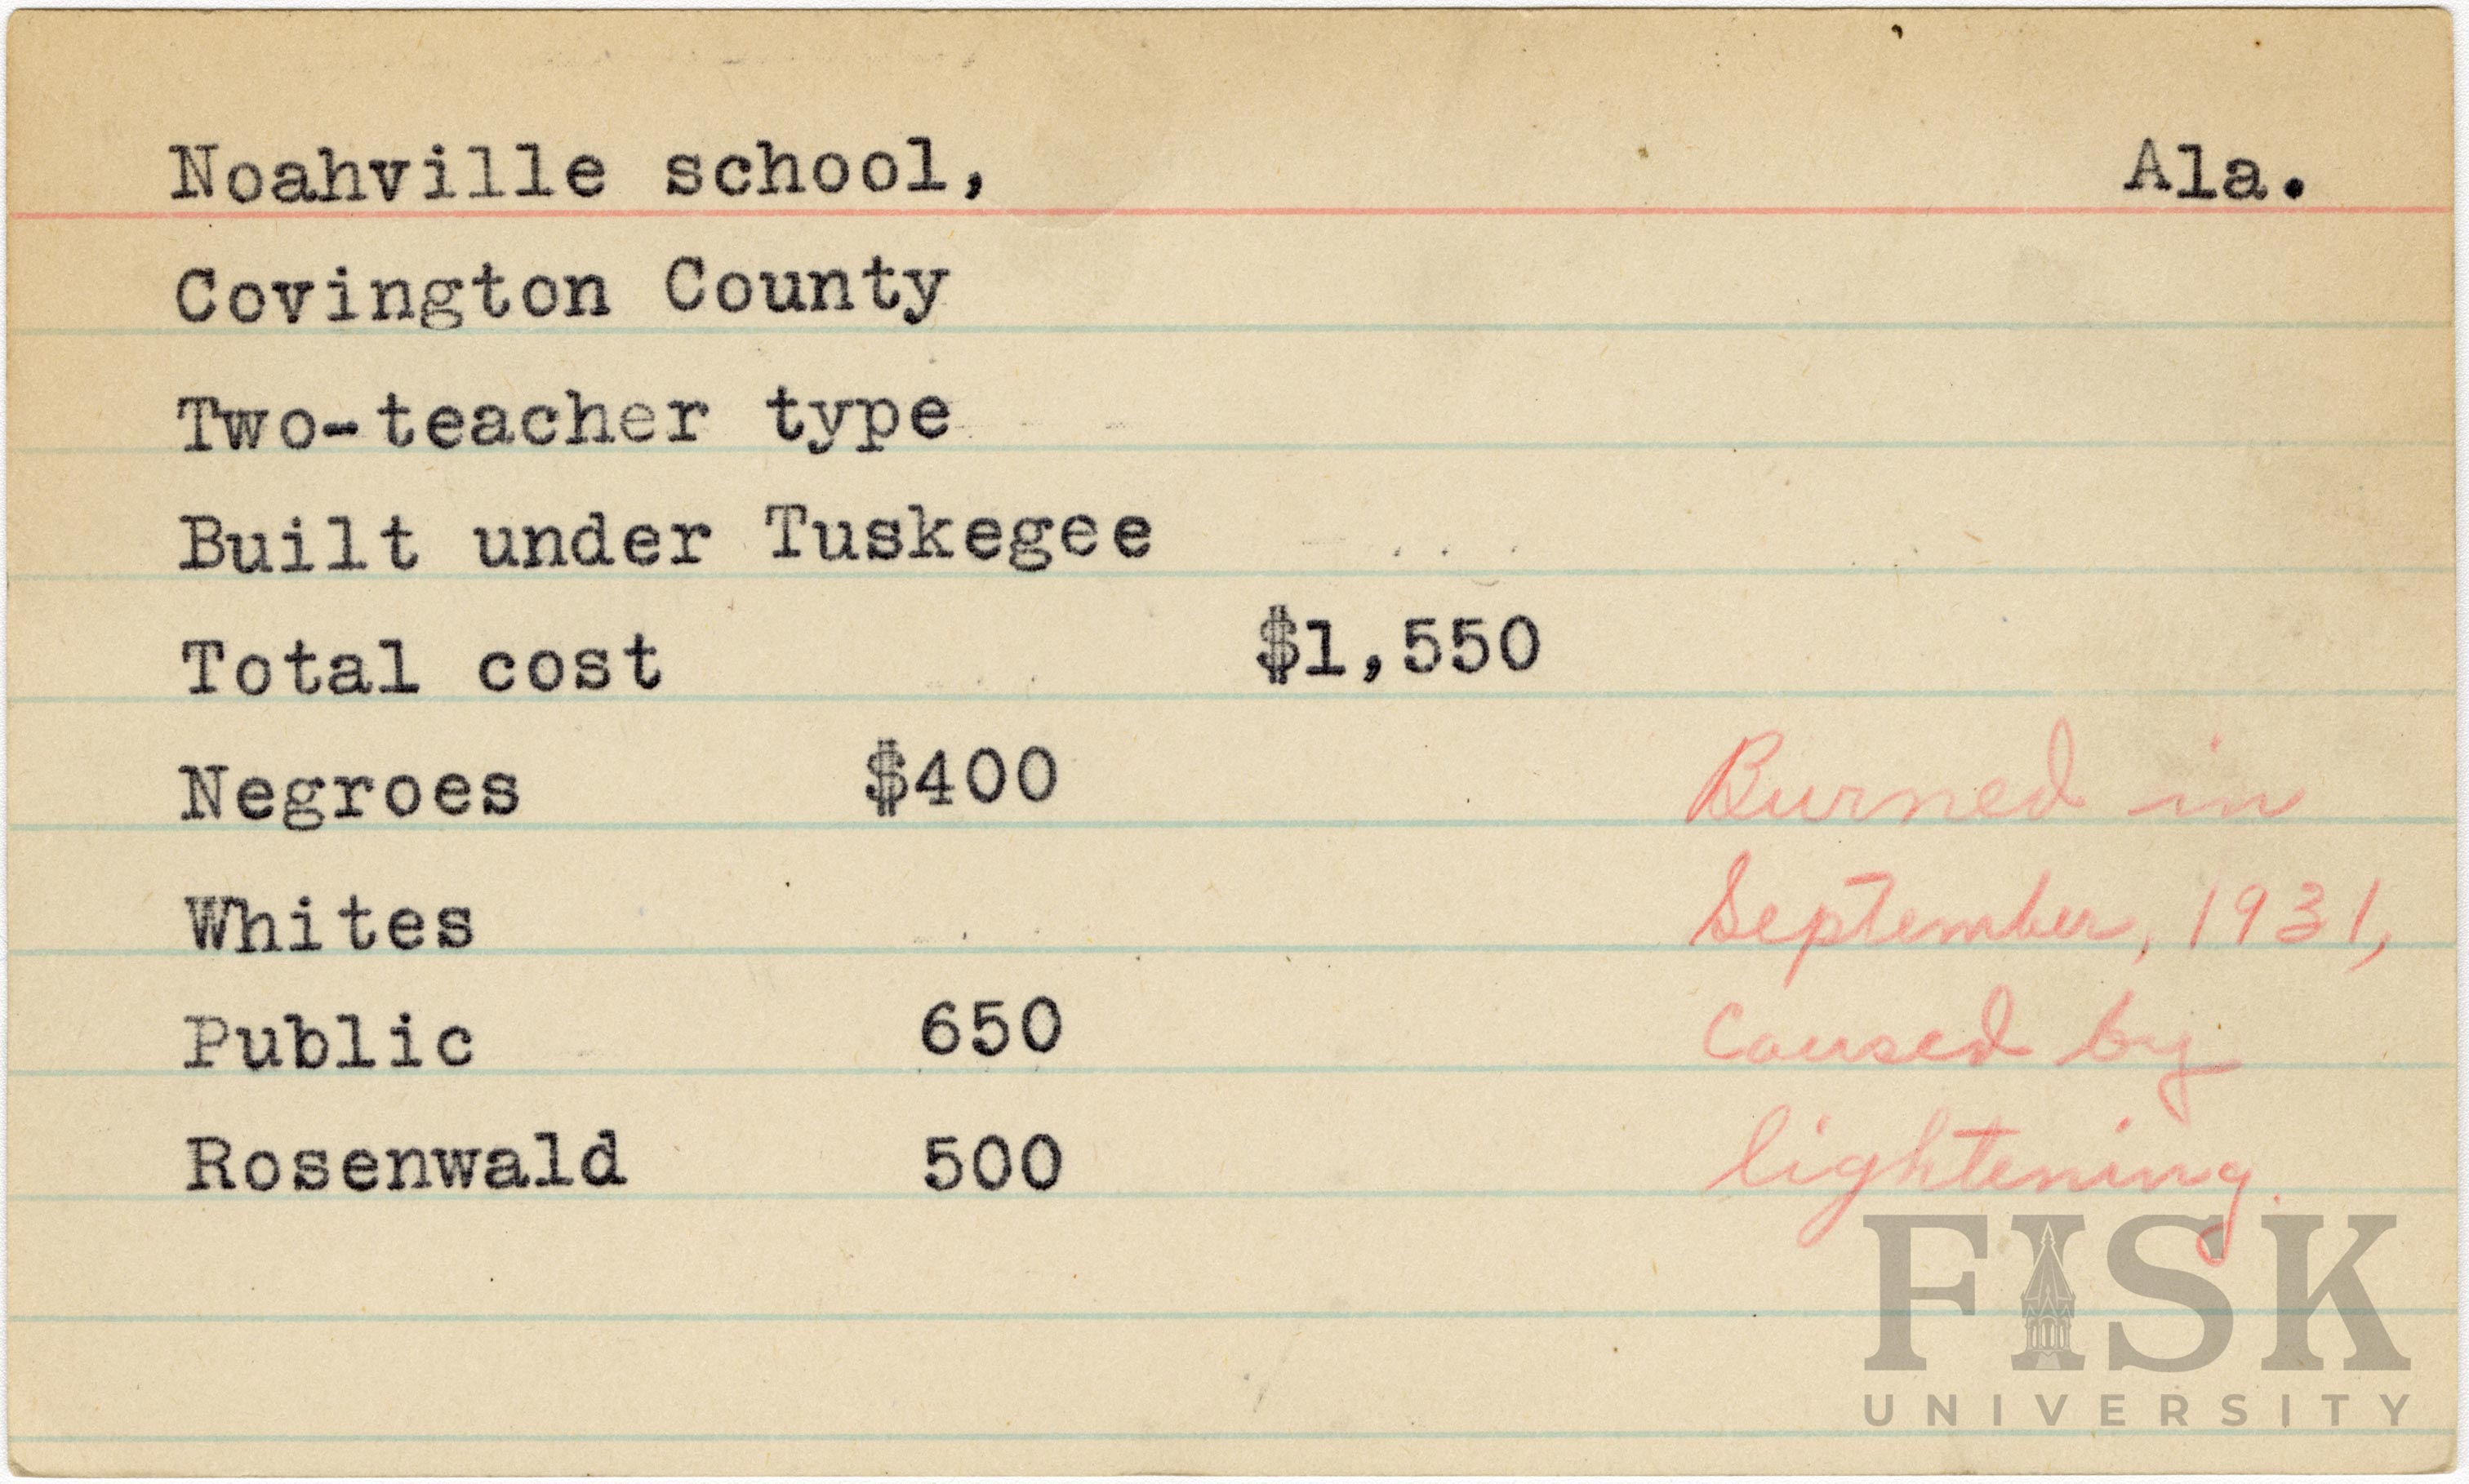 Noahville school, Ala.
Covington County
Two-teacher type
Built under Tuskegee
Total cost $1,550
Negroes $400
Whites
Public 650
Rosenwald 500
Burned in
September, 1931,
Caused by
lightening.
FISK
UNIVERSITY